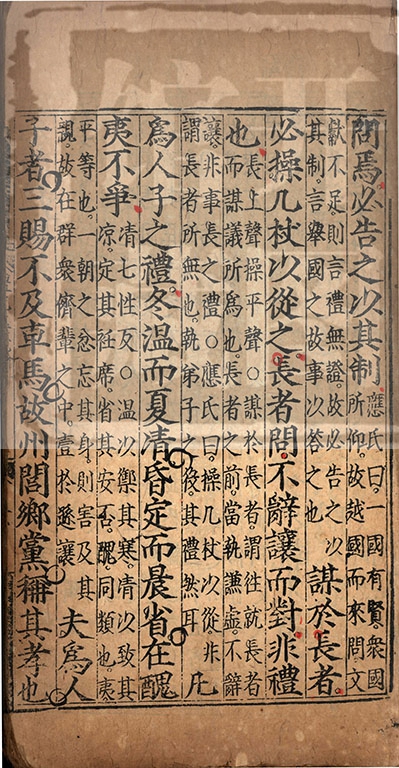 問焉必告之以其制
應氏曰一國有賢衆國
所仰故越國而來問文
獻不足則言禮無證故必告之以
其制言舉國之故事以答之也
謀於長者
必操几杖以從之長者問不辭讓而對非禮
也
長上聲操平聲○謀於長者謂往就長者
而謀議所爲也長者之前當執謙虛不辭
讓非事長之禮○應氏曰操几杖以從非
謂長者所無也執弟子之役其禮然耳
凡
爲人子之禮冬溫而夏凊昏定而晨省在醜
夷不爭
凊七性反○溫以禦其寒凊以致其
凉定其衽席省其安否醜同類也夷
平等也一朝之忿忘其身則害及其
親故在群衆儕輩之中壹於遜讓
夫爲人
子者三賜不及車馬故州閭鄉黨稱其孝也